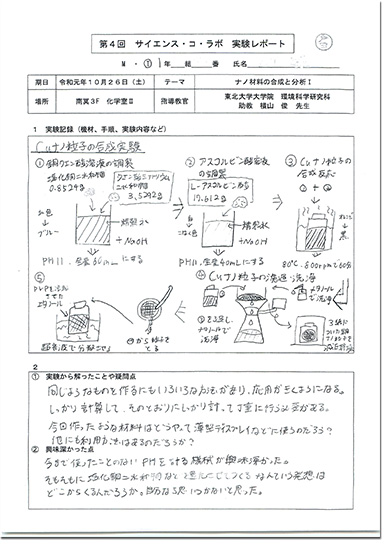 第4回 サイエンス・コ・ラボ 実験レポート
M・① 1年 組 番 氏名
期日 令和元年10月26日（土） テーマ ナノ材料の合成と分析Ⅰ
場所 南翼3F 化学室Ⅱ 指導教官 東北大学大学院 環境科学研究科
助教 横山 俊 先生
1 実験記録（機材、手順、実験内容など）
Cuナノ粒子の合成実験
① 銅クエン酸溶液の調製
塩化銅二水和物
0.8524g
3.5292g
蒸留水
+NaOH
ブルー
PH11、全量60mLにする
② アスコルビン酸溶液の調製
L-アスコルビン酸
17.612g
蒸留水
+NaOH
PH11、全量40mLにする
③ Cuナノ粒子の合成反応
①+②
80℃、500rpmで60分
④ Cuナノ粒子の濾過・洗浄
メタノールで洗浄
⑤
2
① 実験から解ったことや疑問点
同じようなものを作るにもいろいろな方法があり、応用がきくようになる。
しっかり計算して、そのとおりにしっかり計って丁寧に行う必要がある。
今回作ったような材料はどうやって薄型ディスプレイなどに使うのだろう?
他にも利用方法はあるのだろうか?
② 興味深かった点
今まで使ったことのないPHをはかる機械が興味深かった。
そもそもに塩化銅二水和物などを
どこからくるんだろうか。自分なら思いつかないと思った。